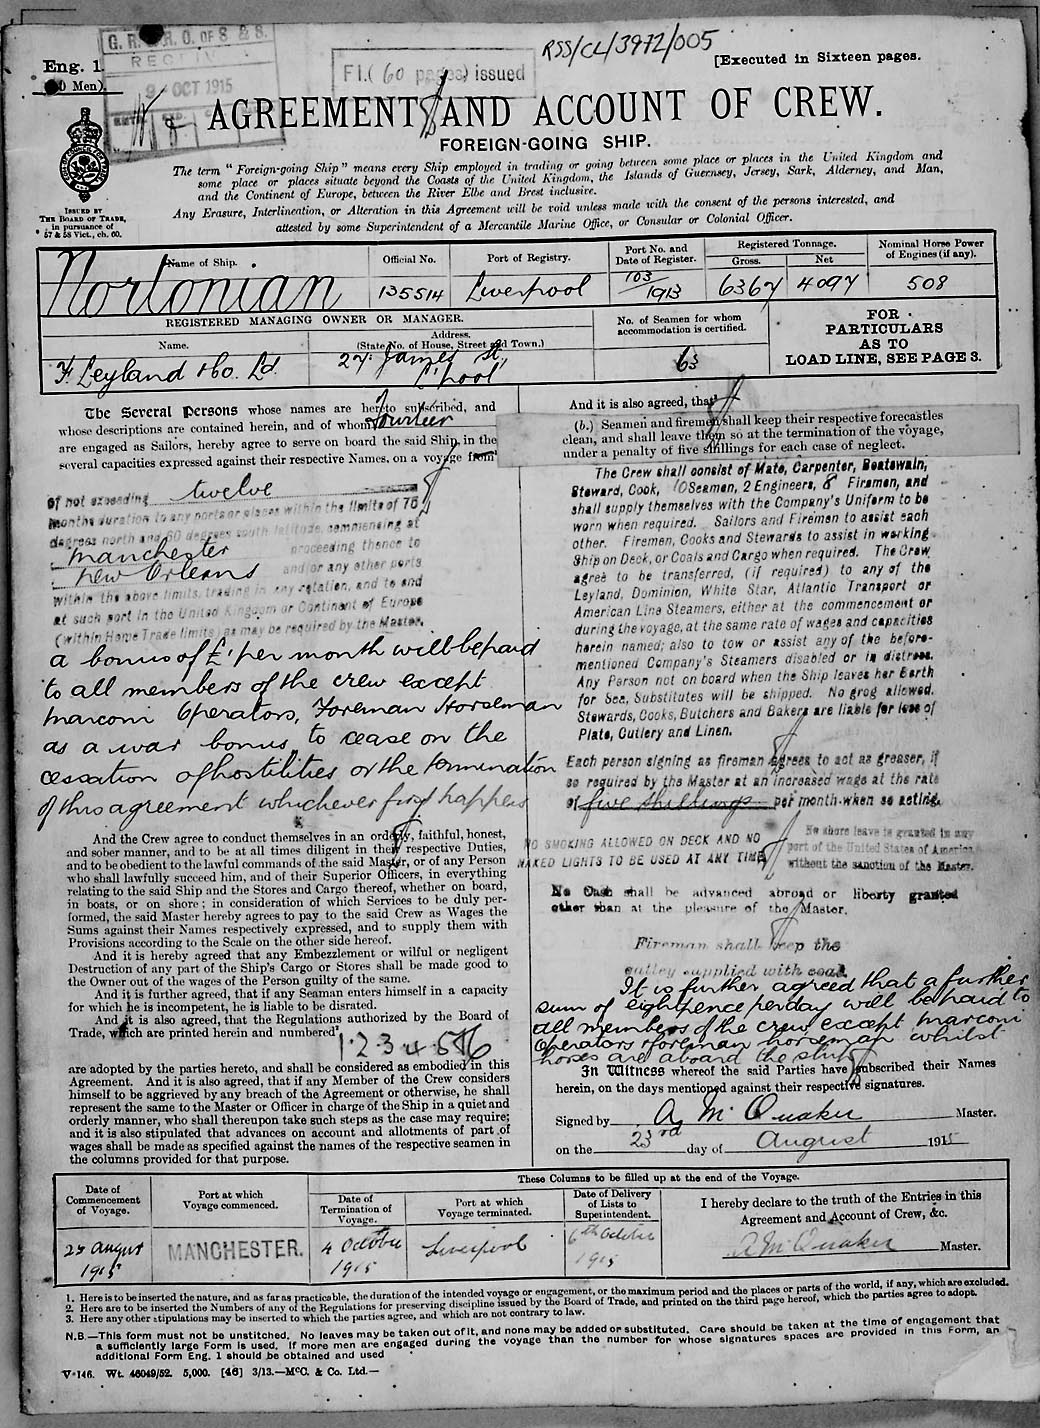 G. R. & R. O. OF S & S.
9 OCT 1915
F1.(60 pages) issued
RSS/CL/3972/005
[Executed in Sixteen pages.
Eng. 1.
0 Men).
AGREEMENT AND ACCOUNT OF CREW.
FOREIGN-GOING SHIP.
ISSUED BY
THE BOARD OF TRADE,
in pursuance of
57 & 58 Vict., ch. 60.
The term "Foreign-going Ship" means every Ship employed in trading or going between some place or places in the United Kingdom and
some place or places situate beyond the Coasts of the United Kingdom, the Islands of Guernsey, Jersey, Sark, Alderney, and Man,
and the Continent of Europe, between the River Elbe and Brest inclusive.
Any Erasure, Interlineation, or Alteration in this Agreement will be void unless made with the consent of the persons interested, and
attested by some Superintendent of a Mercantile Marine Office, or Consular or Colonial Officer.
Name of Ship.
Official No.
Port of Registry.
Port No. and
Date of Register.
Registered Tonnage.
Gross.
Net
Nominal Horse Power
of Engines (if any).
Nortonian
135514
Liverpool
103/1913
6367
4097
508
REGISTERED MANAGING OWNER OR MANAGER.
Name.
Address.
(State No. of House, Street and Town.)
No. of Seamen for whom
accommodation is certified.
FOR
PARTICULARS
AS TO
LOAD LINE, SEE PAGE 3.
F. Leyland & Co. Ld.
27. James St,
L'pool
63
The Several Persons whose names are hereto subscribed, and
whose descriptions are contained herein, and of whom fourteen
are engaged as Sailors, hereby agree to serve on board the said Ship, in the
several capacities expressed against their respective Names, on a voyage from
of not exceeding twelve
months duration to any ports or places within the limits of 75
degrees north and 60 degrees south latitude, commencing at
Manchester proceeding thence to
New Orleans and/or any other ports
within the above limits, trading in any rotation, and to end
at such port in the United Kingdom or Continent of Europe
(within Home Trade limits) as may be required by the Master.
a bonus of £1 per month will be paid
to all members of the crew except
Marconi Operators, Foreman Horseman
as a war bonus, to cease on the
cessation of hostilities or the termination
of this agreement whichever first happens
And the Crew agree to conduct themselves in an orderly, faithful, honest,
and sober manner, and to be at all times diligent in their respective Duties,
and to be obedient to the lawful commands of the said Master, or of any Person
who shall lawfully succeed him, and of their Superior Officers, in everything
relating to the said Ship and the Stores and Cargo thereof, whether on board,
in boats, or on shore; in consideration of which Services to be duly per-
formed, the said Master hereby agrees to pay to the said Crew as Wages the
Sums against their Names respectively expressed, and to supply them with
Provisions according to the Scale on the other side hereof.
And it is hereby agreed that any Embezzlement or wilful or negligent
Destruction of any part of the Ship's Cargo or Stores shall be made good to
the Owner out of the wages of the Person guilty of the same.
And it is further agreed, that if any Seaman enters himself in a capacity
for which he is incompetent, he is liable to be disrated.
And it is also agreed, that the Regulations authorized by the Board of
Trade, which are printed herein and numbered
1. 2. 3. 4. 5 & 6
are adopted by the parties hereto, and shall be considered as embodied in this
Agreement. And it is also agreed, that if any Member of the Crew considers
himself to be aggrieved by any breach of the Agreement or otherwise, he shall
represent the same to the Master or Officer in charge of the Ship in a quiet and
orderly manner, who shall thereupon take such steps as the case may require;
and it is also stipulated that advances on account and allotments of part of
wages shall be made as specified against the names of the respective seamen in
the columns provided for that purpose.
And it is also agreed, that
(b.) Seamen and firemen shall keep their respective forecastles
clean, and shall leave them so at the termination of the voyage,
under a penalty of five shillings for each case of neglect.
The Crew shall consist of Mate, Carpenter, Boatswain,
Steward, Cook, 10 Seamen, 2 Engineers, 8 Firemen, and
shall supply themselves with the Company's Uniform to be
worn when required. Sailors and Firemen to assist each
other. Firemen, Cooks and Stewards to assist in working
Ship on Deck, or Coals and Cargo when required. The Crew
agree to be transferred, (if required) to any of the
Leyland, Dominion, White Star, Atlantic Transport or
American Line Steamers, either at the commencement or
during the voyage, at the same rate of wages and capacities
herein named; also to tow or assist any of the before-
mentioned Company's Steamers disabled or in distress.
Any Person not on board when the Ship leaves her Berth
for Sea, Substitutes will be shipped. No grog allowed.
Stewards, Cooks, Butchers and Bakers are liable for loss of
Plate, Cutlery and Linen.
Each person signing as fireman agrees to act as greaser, if
so required by the Master at an increased wage at the rate
of five shillings per month when so acting.
NO SMOKING ALLOWED ON DECK AND NO
NAKED LIGHTS TO BE USED AT ANY TIME
No shore leave is granted in any
port of the United States of America,
without the sanction of the Master.
No Cash shall be advanced abroad or liberty granted
other than at the pleasure of the Master.
Fireman shall keep the
galley supplied with coal.
It is further agreed that a further
sum of eightpence per day will be paid to
all members of the crew, except Marconi
Operators & foreman horseman whilst
horses are aboard the ship
In Witness whereof the said Parties have subscribed their Names
herein, on the days mentioned against their respective signatures.
Signed by A. M. Quaker Master.
on the 23rd day of August 1915
These Columns to be filled up at the end of the Voyage.
Date of
Commencement
of Voyage.
Port at which
Voyage commenced.
Date of
Termination of
Voyage.
Port at which
Voyage terminated.
Date of Delivery
of Lists to
Superintendent.
I hereby declare to the truth of the Entries in this
Agreement and Account of Crew, &c.
August
1915
MANCHESTER.
4 October
1915
Liverpool
6th October
1915
A M Quaker Master.
1. Here is to be inserted the nature, and as far as practicable, the duration of the intended voyage or engagement, or the maximum period and the places or parts of the world, if any, which are excluded.
2. Here are to be inserted the Numbers of any of the Regulations for preserving discipline issued by the Board of Trade, and printed on the third page hereof, which the parties agree to adopt.
3. Here any other stipulations may be inserted to which the parties agree, and which are not contrary to law.
N.B.—This form must not be unstitched. No leaves may be taken out of it, and none may be added or substituted. Care should be taken at the time of engagement that
a sufficiently large Form is used. If more men are engaged during the voyage than the number for whose signatures spaces are provided in this Form, an
additional Form Eng. 1 should be obtained and used
V 146. Wt. 46049/52. 5,000. [46] 3/13.—McC. & Co. Ltd.—